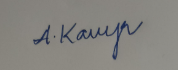 A. Kauyr